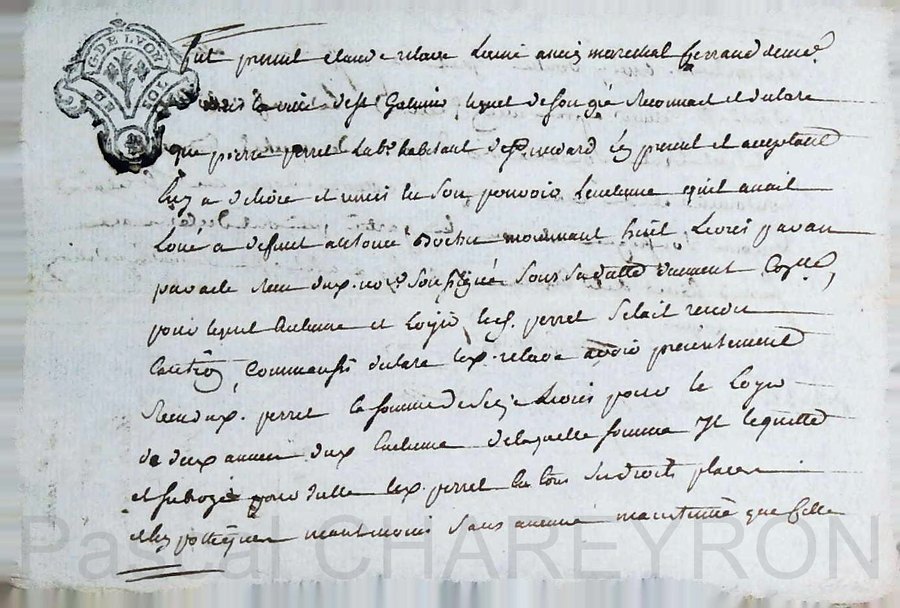 G. DE LYON
DEUX SOLS
fut present claude relave Lainé ancien marechal ferrand demeur
dans la ville de st Galmier lequel de son gré reconnait et declare
que pierre perret Lab.r habitant de present et acceptant
luy a delivré et remis en son pouvoir Lenclume quil avait
Loué a deffunt antoine moennant huit Livres par an
par acte receu dud. no.re soussigné sous sa datte duement Coll.é,
pour lequel Enclume et Loyer led. perret setait rendu
Caution, Comme aussi declare led. relave avoir présentement
Receu dud. perret la somme de seize Livres pour le Loyer
de deux années dud. Enclume de laquelle somme Il le quitte
et subroge pour icelle led. perret en tous ses droits places
et hypotheques neantmoins sans aucune maintenüe que celle
Pascal CHAREYRON